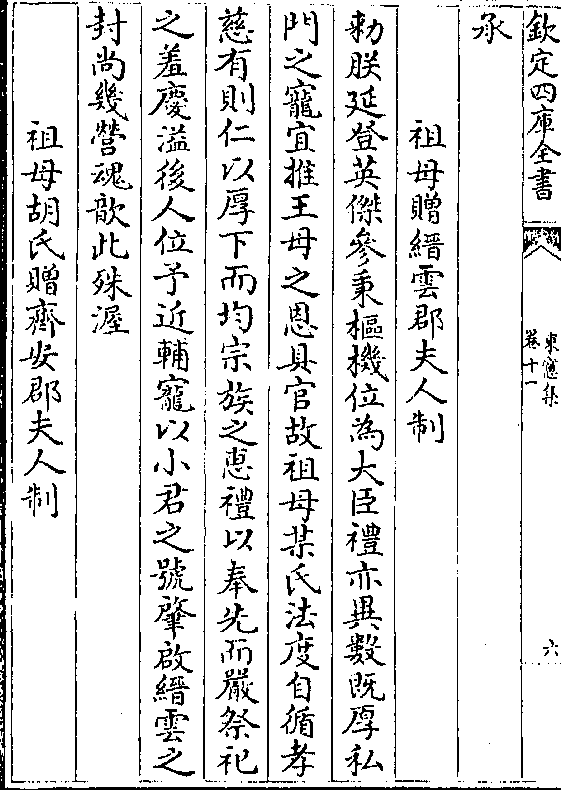 欽定四庫全書
東窻集
卷十一
六
承
祖母贈縉雲郡夫人制
勑朕延登英傑參秉樞機位為大臣禮亦異數既厚私
門之寵宜推王母之恩具官故祖母某氏法度自循孝
慈有則仁以厚下而均宗族之惠禮以奉先而嚴祭祀
之羞慶溢後人位予近輔寵以小君之號肇啟縉雲之
封尚幾營魂歆此殊渥
祖母胡氏贈齊安郡夫人制